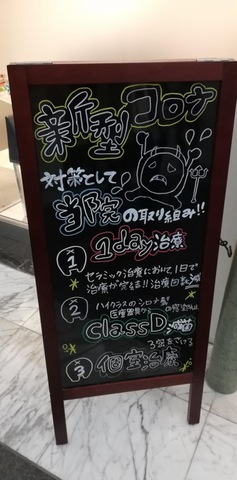 新型コロナ
対策として
当院の取り組み!!
1 1day治療
セラミック治療において1日で
治療が完結!! 治療回数減
2 ハイクラスの
医療器具から
classD 滅菌
3密をさける
3 個室治療